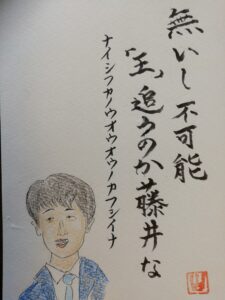 無いし不可能
「王」追うのか藤井な
ナイシフカノウオウオウノカフシイナ